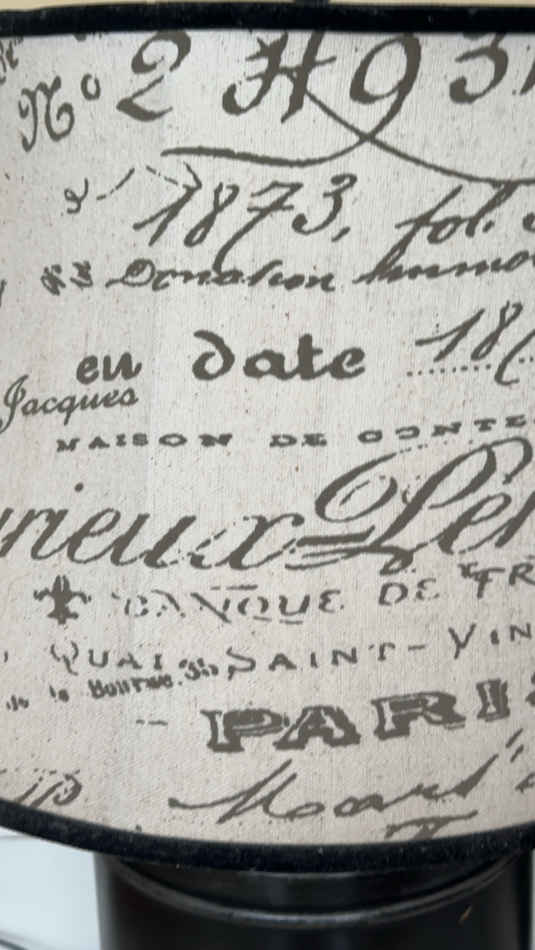 No 2 H 93
1873, fol.
Donation Immo
en date 18
Jacques
MAISON DE CONTE
rieux=Le
BANQUE DE FR
QUAI SAINT-VIN
de la Bourse.
PARIS